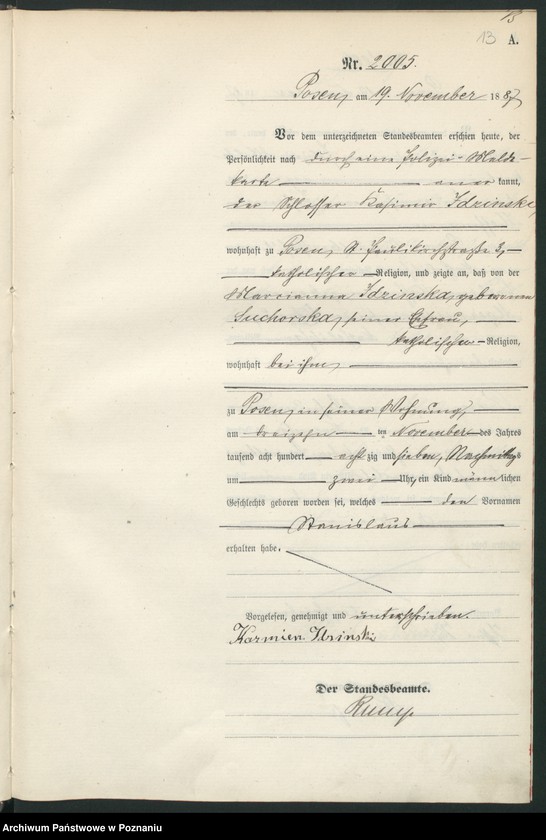 13
13 A.
Nr. 2005.
Posen, am 19. November 1887
Vor dem unterzeichneten Standesbeamten erschien heute, der
Persönlichkeit nach durch eine Polizei-Melde-
karte anerkannt,
der Schlosser Kasimir Idzinski,
wohnhaft zu Posen, St. Paulikirchstraße 3,
katholischer Religion, und zeigte an, daß von der
Marcianna Idzinska, geborenen
Suchorska, seiner Ehefrau,
katholischer Religion,
wohnhaft bei ihm,
zu Posen, in seiner Wohnung,
am dreizehnten November des Jahres
tausend acht hundert achtzig und sieben, Nachmittags
um zwei Uhr, ein Kind männlichen
Geschlechts geboren worden sei, welches den Vornamen
Stanislaus
erhalten habe.
Vorgelesen, genehmigt und unterschrieben.
Kazmierz Idzinski
Der Standesbeamte.
Archiwum Państwowe w Poznaniu